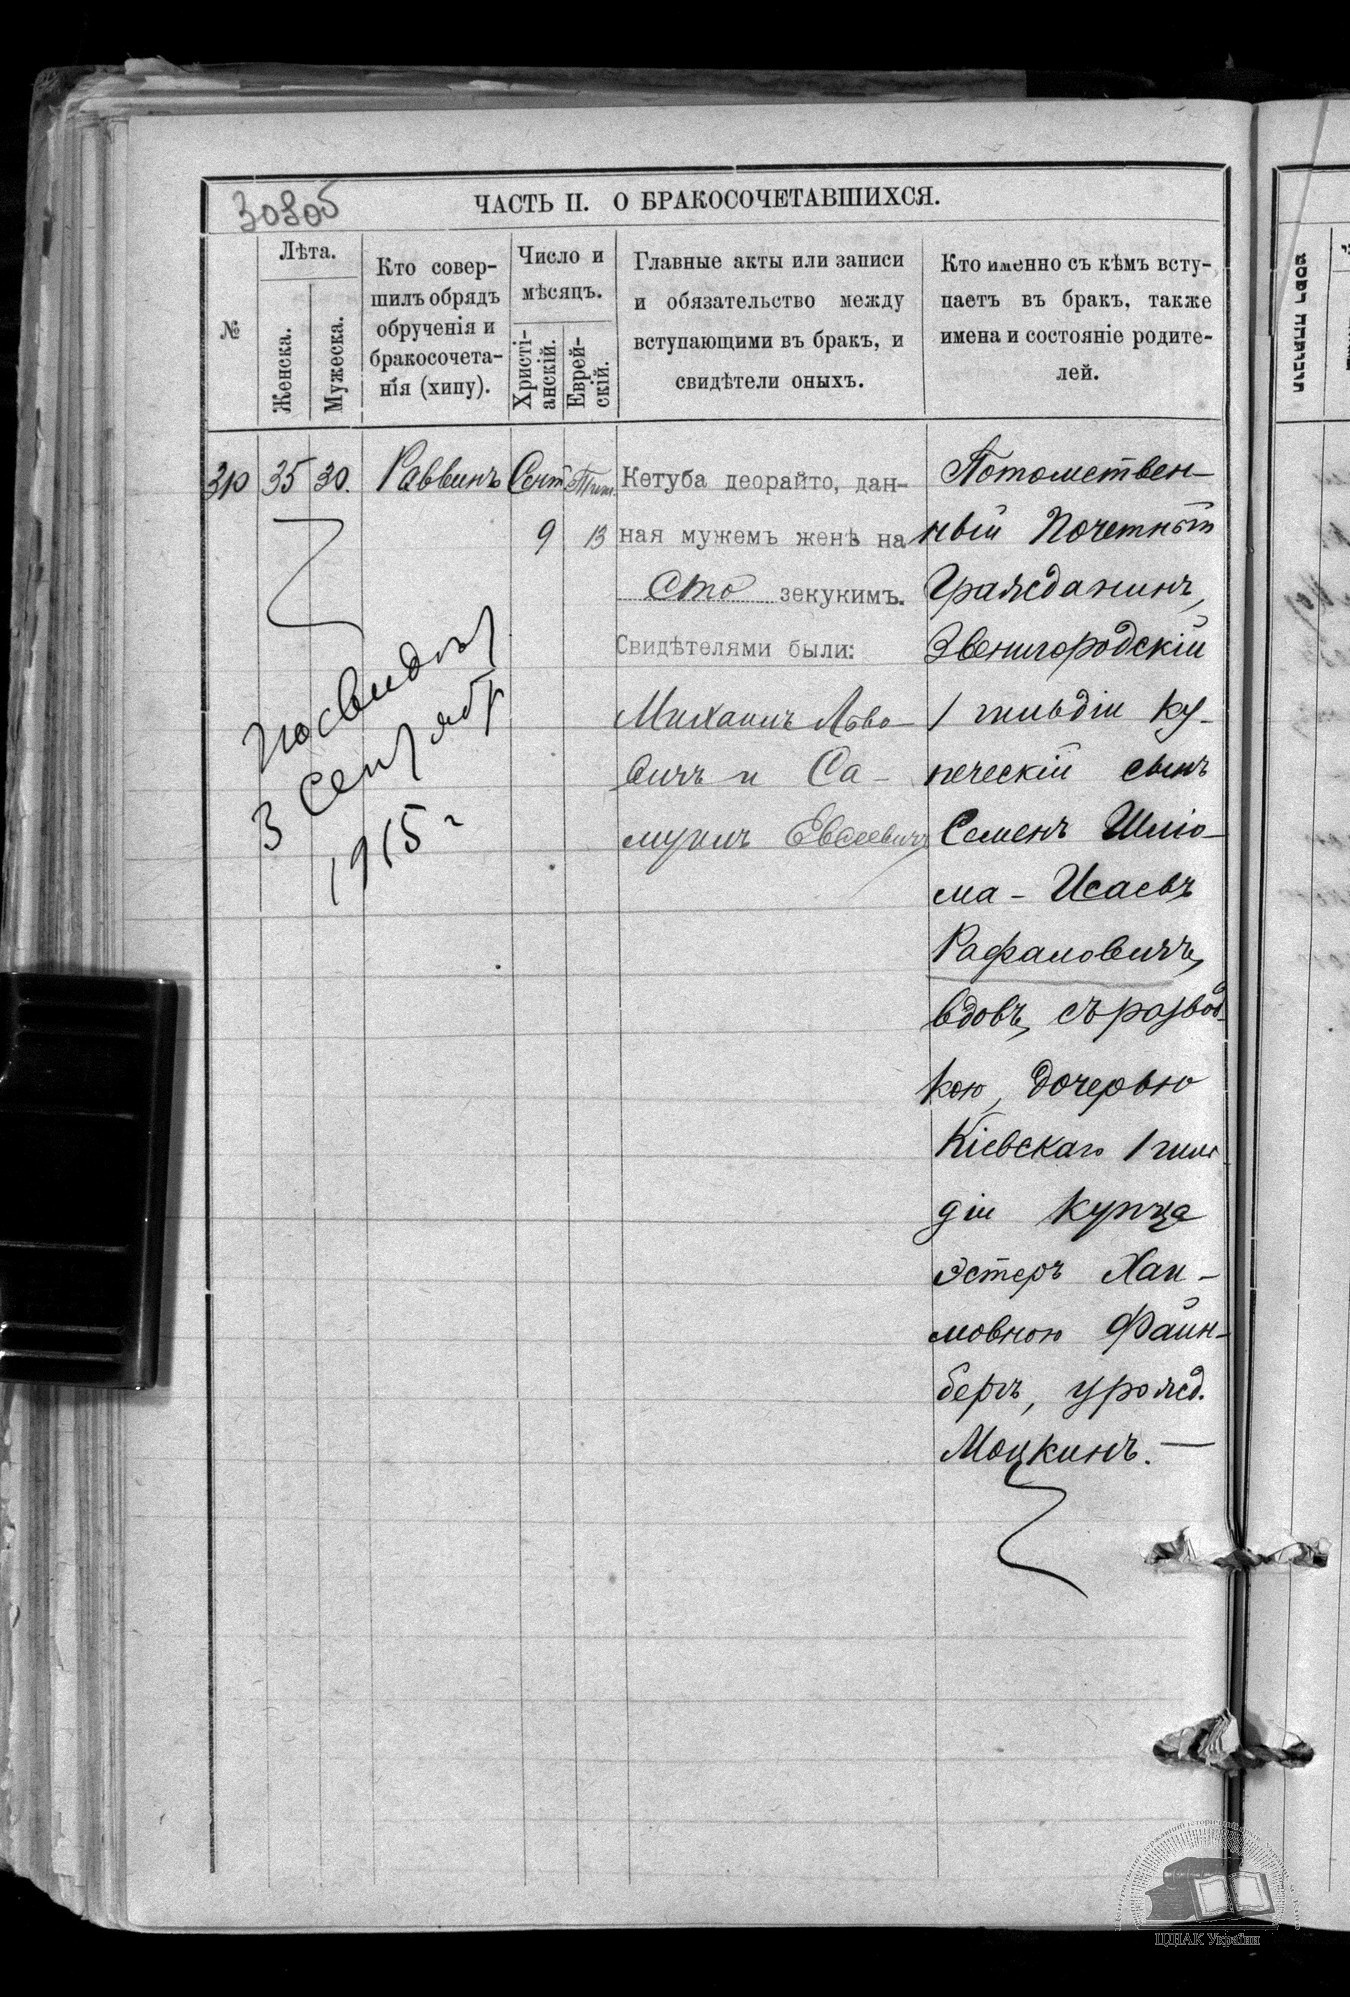 ЧАСТЬ II. О БРАКОСОЧЕТАВШИХСЯ.
№
Лѣта.
Женска.
Мужеска.
Кто совер-
шилъ обрядъ
обрученія и
бракосочета-
нія (хипу).
Число и
мѣсяцъ.
Христі-
анскій.
Еврей-
скій.
Главные акты или записи
и обязательство между
вступающими въ бракъ, и
свидѣтели оныхъ.
Кто именно съ кѣмъ всту-
паетъ въ бракъ, также
имена и состояніе родите-
лей.
35
30.
Раввинъ
Сент
9
Тиш.
13
Кетуба деорайто, дан-
ная мужемъ женѣ на
Сто зекукимъ.
Свидѣтелями были:
Михаилъ Льво-
вичъ и Са-
муилъ Евсеевичъ
Потомствен-
ный Почетный
Гражданинъ,
Звенигородскій
1 гильдіи ку-
печескій сынъ
Семенъ Шлiо-
ма-Исаевъ
Рафаловичъ,
вдовъ, съ развод-
кою, дочерью
Кіевскаго 1 гиль
діи купца
Эстеръ Хаи-
мовною Файн-
бергъ, урожд.
Моцкинъ. —
3 Сентября
1915 г
ЦДІАК України